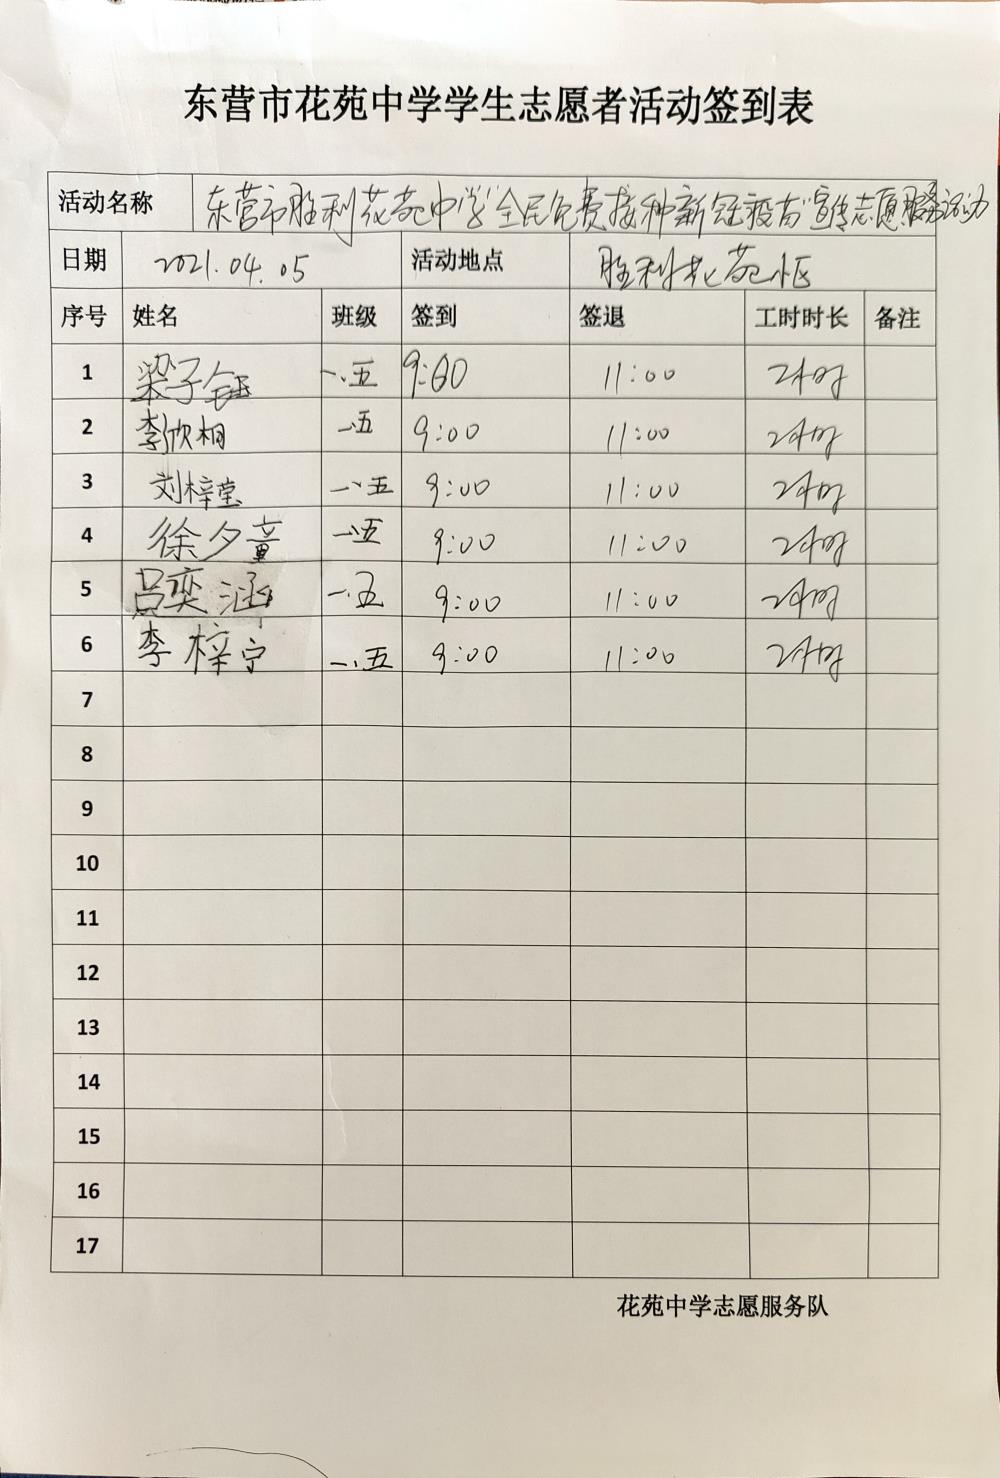 东营市花苑中学学生志愿者活动签到表
活动名称 东营市胜利花苑中学"全民免费接种新冠疫苗"宣传志愿服务活动
日期 2021.04.05 活动地点 胜利花苑小区
序号 姓名 班级 签到 签退 工时时长 备注
1 梁子钰 一.五 9:00 11:00 2小时
2 李欣桐 一.五 9:00 11:00 2小时
3 刘梓莹 一.五 9:00 11:00 2小时
4 徐夕童 一.五 9:00 11:00 2小时
5 吕奕涵 一.五 9:00 11:00 2小时
6 李梓宁 一.五 9:00 11:00 2小时
7
8
9
10
11
12
13
14
15
16
17
花苑中学志愿服务队